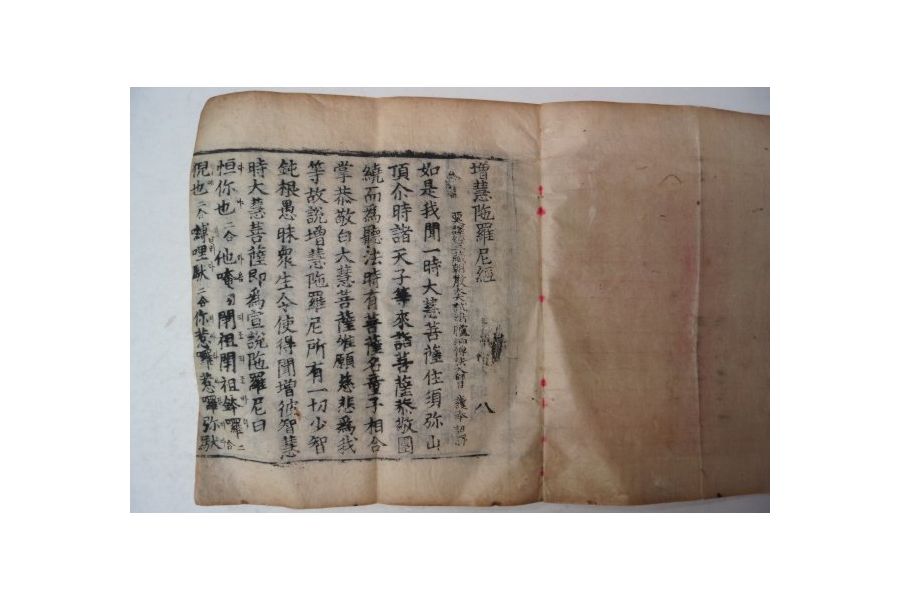 增慧陁羅尼經 八
譯經三藏朝散大夫試鴻臚 傳法大師 奉詔譯
如是我聞一時大慧菩薩住須弥山
頂尒時諸天子等來詣菩薩恭敬圍
繞而爲聽法時有菩薩名童子相合
掌恭敬白大慧菩薩唯願慈悲爲我
等故說增慧陁羅尼所有一切少智
鈍根愚昧衆生令使得聞增彼智慧
時大慧菩薩即爲宣說陁羅尼曰
怛你也二合他唵引閉祖閉祖鉢囉二合
倪也二合縛哩馱二合你惹囉惹囉弥馱